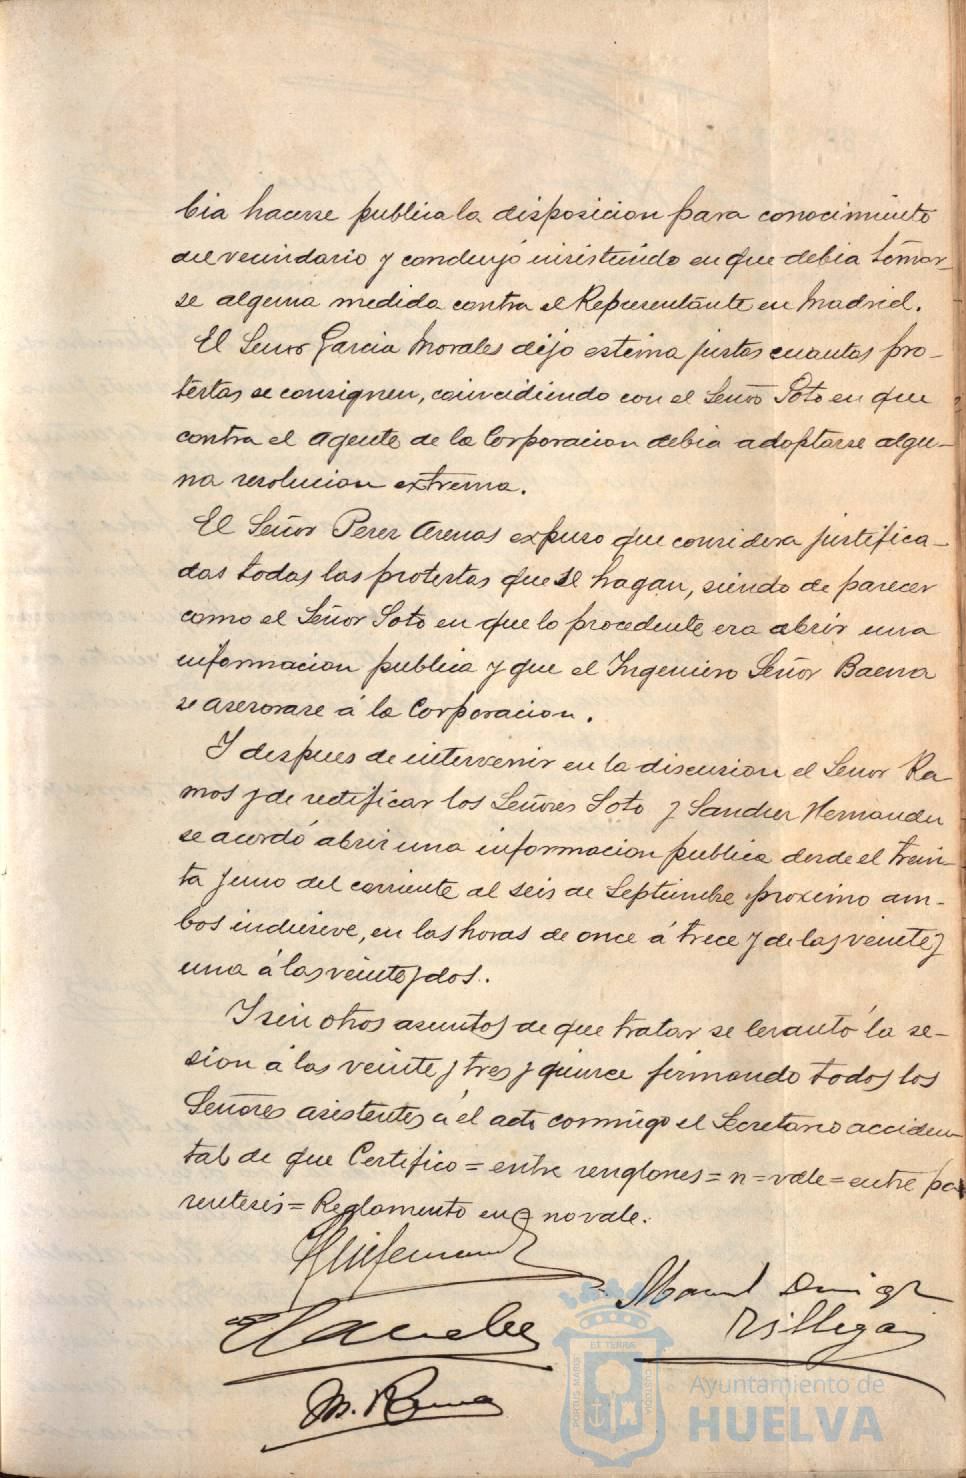 bia hacerse publica la disposicion para conocimiento
del vecindario y concluyó insistiendo en que debia tomar-
se alguna medida contra el Representante en Madrid.
El Señor Garcia Morales dijo estima justas cuantas pro-
testas se consignen, coincidiendo con el Señor Soto en que
contra el Agente de la Corporacion debia adoptarse algu-
na resolucion extrema.
El Señor Perez Arenas expuso que considera justifica-
das todas las protestas que se hagan, siendo de parecer
como el Señor Soto en que lo procedente era abrir una
informacion publica y que el Ingeniero Señor Baena
se asesorase á la Corporacion.
Y despues de intervenir en la discusion el Señor Ra
mos y de rectificar los Señores Soto y Sanchez Hernandez
se acordó abrir una informacion publica desde el trein-
ta y uno del corriente al seis de Septiembre proximo am-
bos inclusive, en las horas de once á trece y de las veinte y
una á las veinte y dos.
Y sin otros asuntos de que tratar se levantó la se-
sion á las veinte y tres y quince firmando todos los
Señores asistentes á el acto conmigo el Secretario acciden
tal de que Certifico = entre renglones = n = vale = entre pa
rentesis = Reglamento en = no vale.
Manuel
M. Ramos
PORTUS MARIS ET TERRÆ CUSTODIA
Ayuntamiento de
HUELVA